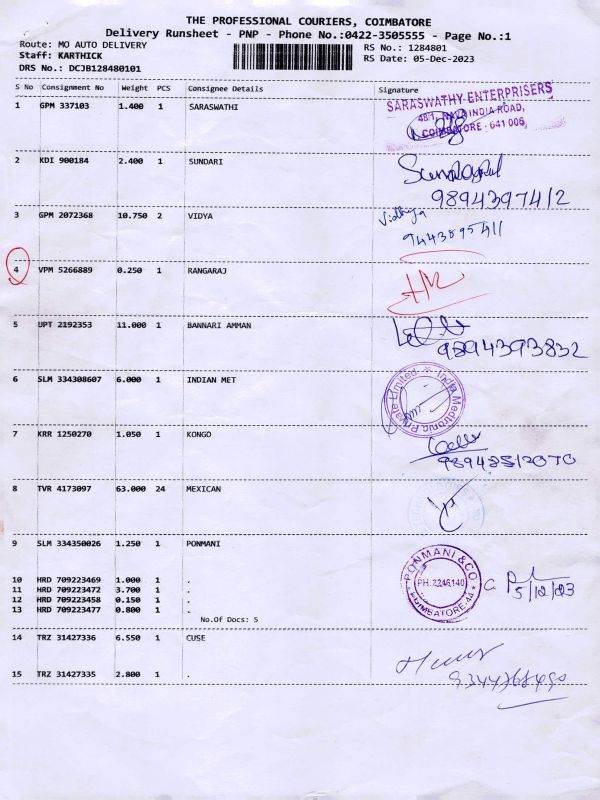 THE PROFESSIONAL COURIERS, COIMBATORE
Delivery Runsheet - PNP - Phone No.:0422-3505555 - Page No.:1
Route: MO AUTO DELIVERY RS No.: 1284801
Staff: KARTHICK RS Date: 05-Dec-2023
DRS No.: DCJB128480101
S No Consignment No Weight PCS Consignee Details Signature
1 GPM 337103 1.400 1 SARASWATHI SARASWATHY ENTERPRISERS
INDIA ROAD,
COIMBATORE - 641 006,
2 KDI 900184 2.400 1 SUNDARI
9894397412
3 GPM 2072368 10.750 2 VIDYA Vidhya
9443895411
4 VPM 5266889 0.250 1 RANGARAJ
5 UPT 2192353 11.000 1 BANNARI AMMAN
9894393832
6 SLM 334308607 6.000 1 INDIAN MET India Medtronic Private Limited
7 KRR 1250270 1.050 1 KONGO
8 TVR 4173097 63.000 24 MEXICAN
9 SLM 334350026 1.250 1 PONMANI PONMANI & CO
PH: 2246140
COIMBATORE-44
5/12/23
10 HRD 709223469 1.000 1 .
11 HRD 709223472 3.700 1 .
12 HRD 709223458 0.150 1 .
13 HRD 709223477 0.800 1 .
No.Of Docs: 5
14 TRZ 31427336 6.550 1 CUSE
15 TRZ 31427335 2.800 1 .